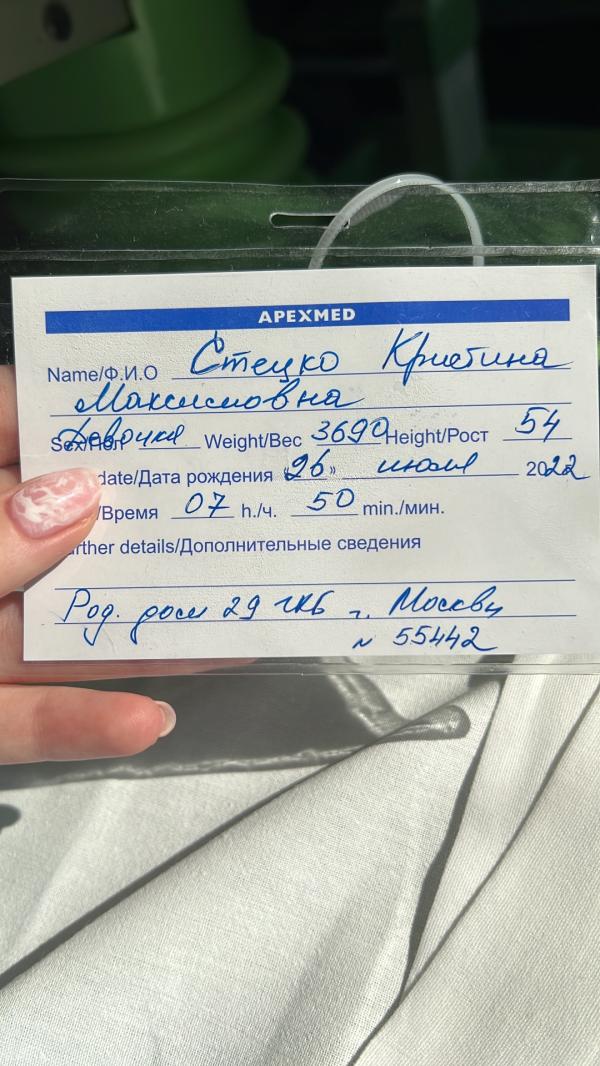 APEXMED
Name/Ф.И.О Стецко Кристина
Максимовна
Sex/Пол Девочка Weight/Вес 3690 Height/Рост 54
date/Дата рождения «26» июля 2022
/Время 07 h./ч. 50 min./мин.
rther details/Дополнительные сведения
Род. дом 29 ГКБ г. Москвы
№ 55442